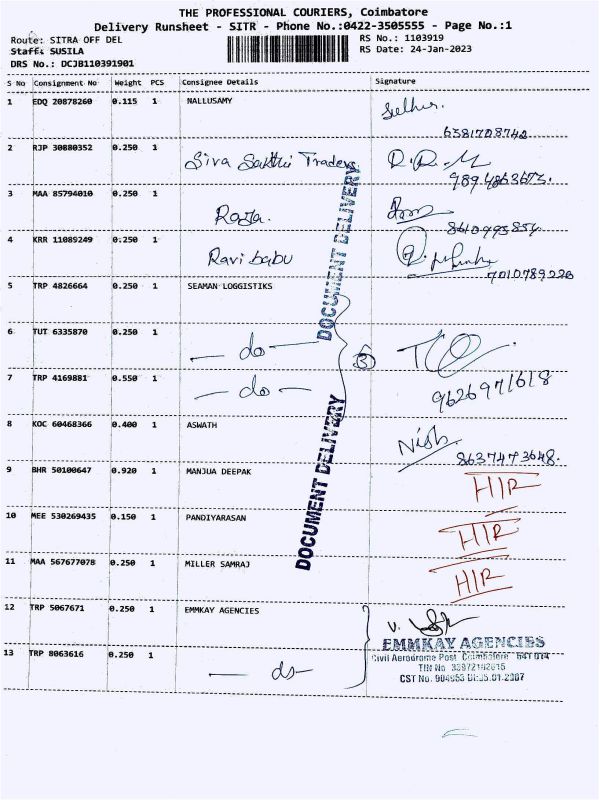 THE PROFESSIONAL COURIERS, Coimbatore
Delivery Runsheet - SITR - Phone No.:0422-3505555 - Page No.:1
Route: SITRA OFF DEL RS No.: 1103919
Staff: SUSILA RS Date: 24-Jan-2023
DRS No.: DCJB110391901
S No Consignment No Weight PCS Consignee Details Signature
1 EDQ 20878260 0.115 1 NALLUSAMY
6381708740
2 RJP 30880352 0.250 1 Siva Sakthi Traders
9894863673.
3 MAA 85794010 0.250 1 Raja.
4 KRR 11089249 0.250 1 Ravi babu
7010789220
5 TRP 4826664 0.250 1 SEAMAN LOGGISTIKS
6 TUT 6335870 0.250 1 — do — 3
7 TRP 4169881 0.550 1 — do —
9626971618
8 KOC 60468366 0.400 1 ASWATH Nish
8637473648.
9 BHR 50100647 0.920 1 MANJUA DEEPAK HIR
10 MEE 530269435 0.150 1 PANDIYARASAN HIR
11 MAA 567677078 0.250 1 MILLER SAMRAJ HIR
12 TRP 5067671 0.250 1 EMMKAY AGENCIES
EMMKAY AGENCIES
Civil Aerodrome Post, Coimbatore - 641 014
13 TRP 8063616 0.250 1 — do —
DOCUMENT DELIVERY
DOCUMENT DELIVERY